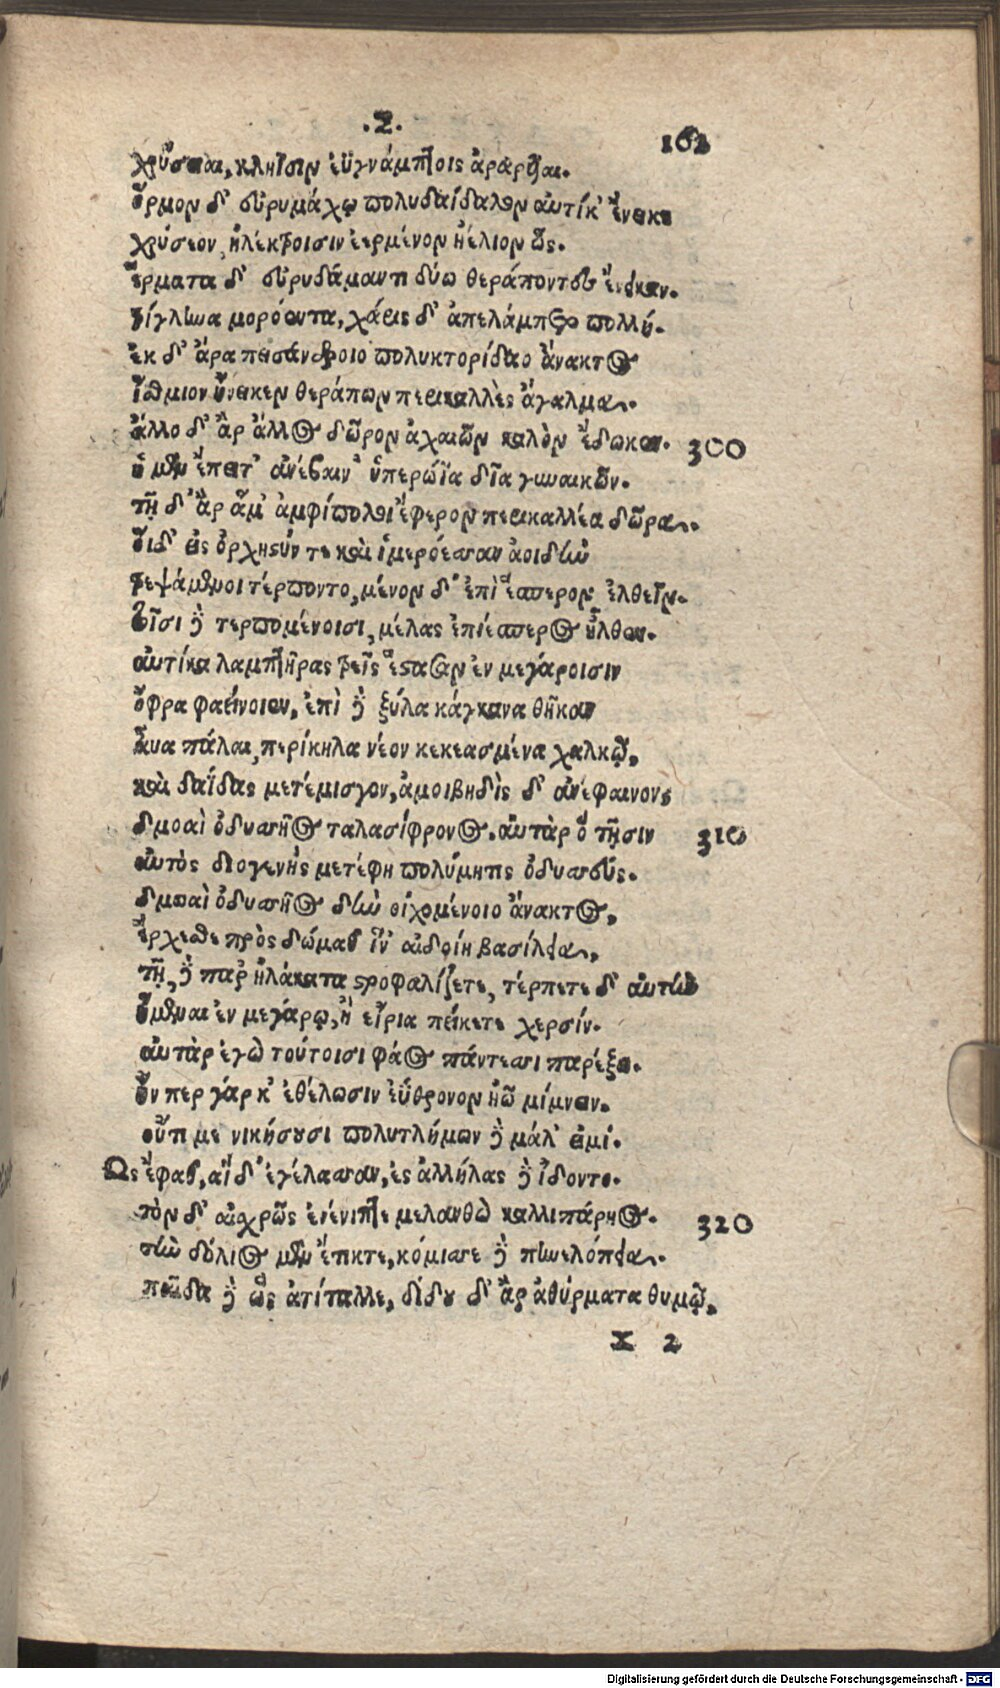 .Σ.
162
χρύσειαι, κληῖσιν ἐϋγνάμπτοις ἀραρυῖαι.
ὅρμον δ' εὐρυμάχῳ πολυδαίδαλον αὐτίκ' ἔνεικε
χρύσεον, ἠλέκτροισιν ἐερμένον ἠέλιον ὥς.
ἕρματα δ' εὐρυδάμαντι δύω θεράποντες ἔνεικαν.
τρίγληνα μορόεντα, χάρις δ' ἀπελάμπετο πολλή.
ἐκ δ' ἄρα πεισάνδροιο πολυκτορίδαο ἄνακτος
ἴσθμιον ἤνεικεν θεράπων περικαλλὲς ἄγαλμα.
ἄλλο δ' ἂρ ἄλλος δῶρον ἀχαιῶν καλὸν ἔδωκεν. 300
ἡ μὲν ἔπειτ' ἀνέβαιν' ὑπερώϊα δῖα γυναικῶν.
τῇ δ' ἂρ ἅμ' ἀμφίπολοι ἔφερον περικαλλέα δῶρα.
οἱ δ' εἰς ὀρχηστύν τε καὶ ἱμερόεσσαν ἀοιδὴν
τρεψάμενοι τέρποντο, μένον δ' ἐπὶ ἕσπερον ἐλθεῖν.
τοῖσι δὲ τερπομένοισι, μέλας ἐπὶ ἕσπερος ἦλθεν.
αὐτίκα λαμπτῆρας τρεῖς ἔστασαν ἐν μεγάροισιν
ὄφρα φαείνοιεν, ἐπὶ δὲ ξύλα κάγκανα θῆκαν
αὖα πάλαι, περίκηλα νέον κεκεασμένα χαλκῷ,
καὶ δαΐδας μετέμισγον, ἀμοιβηδὶς δ' ἀνέφαινον
δμωαὶ ὀδυσσῆος ταλασίφρονος. αὐτὰρ ὃ τῇσιν 310
αὐτὸς διογενὴς μετέφη πολύμητις ὀδυσσεύς.
δμωαὶ ὀδυσσῆος δὴν οἰχομένοιο ἄνακτος,
ἔρχεσθε πρὸς δώμαθ' ἵν' αἰδοίη βασίλεια,
τῇ, δὲ παρ' ἠλάκατα στροφαλίζετε, τέρπετε δ' αὐτὴν
ἥμεναι ἐν μεγάρῳ, ἢ εἴρια πείκετε χερσίν.
αὐτὰρ ἐγὼ τούτοισι φάος πάντεσσι παρέξω.
ἤν περ γάρ κ' ἐθέλωσιν ἐΰθρονον ἠῶ μίμνειν.
οὔτι με νικήσουσι πολυτλήμων δὲ μάλ' εἰμί.
Ως ἔφαθ', αἳ δ' ἐγέλασσαν, ἐς ἀλλήλας δὲ ἴδοντο.
τὸν δ' αἰσχρῶς ἐνένιπτε μελανθὼ καλλιπάρηος. 320
τὴν δόλιος μὲν ἔτικτε, κόμισσε δὲ πηνελόπεια.
παῖδα δὲ ὣς ἀτίταλλε, δίδου δ' ἂρ ἀθύρματα θυμῷ,
X 2
Digitalisierung gefördert durch die Deutsche Forschungsgemeinschaft - DFG